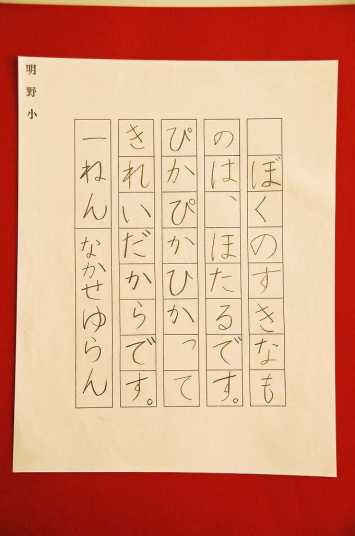 ぼくのすきなも
のは、ほたるです。
ぴかぴかひかって
きれいだからです。
一ねんなかせゆらん
明野小